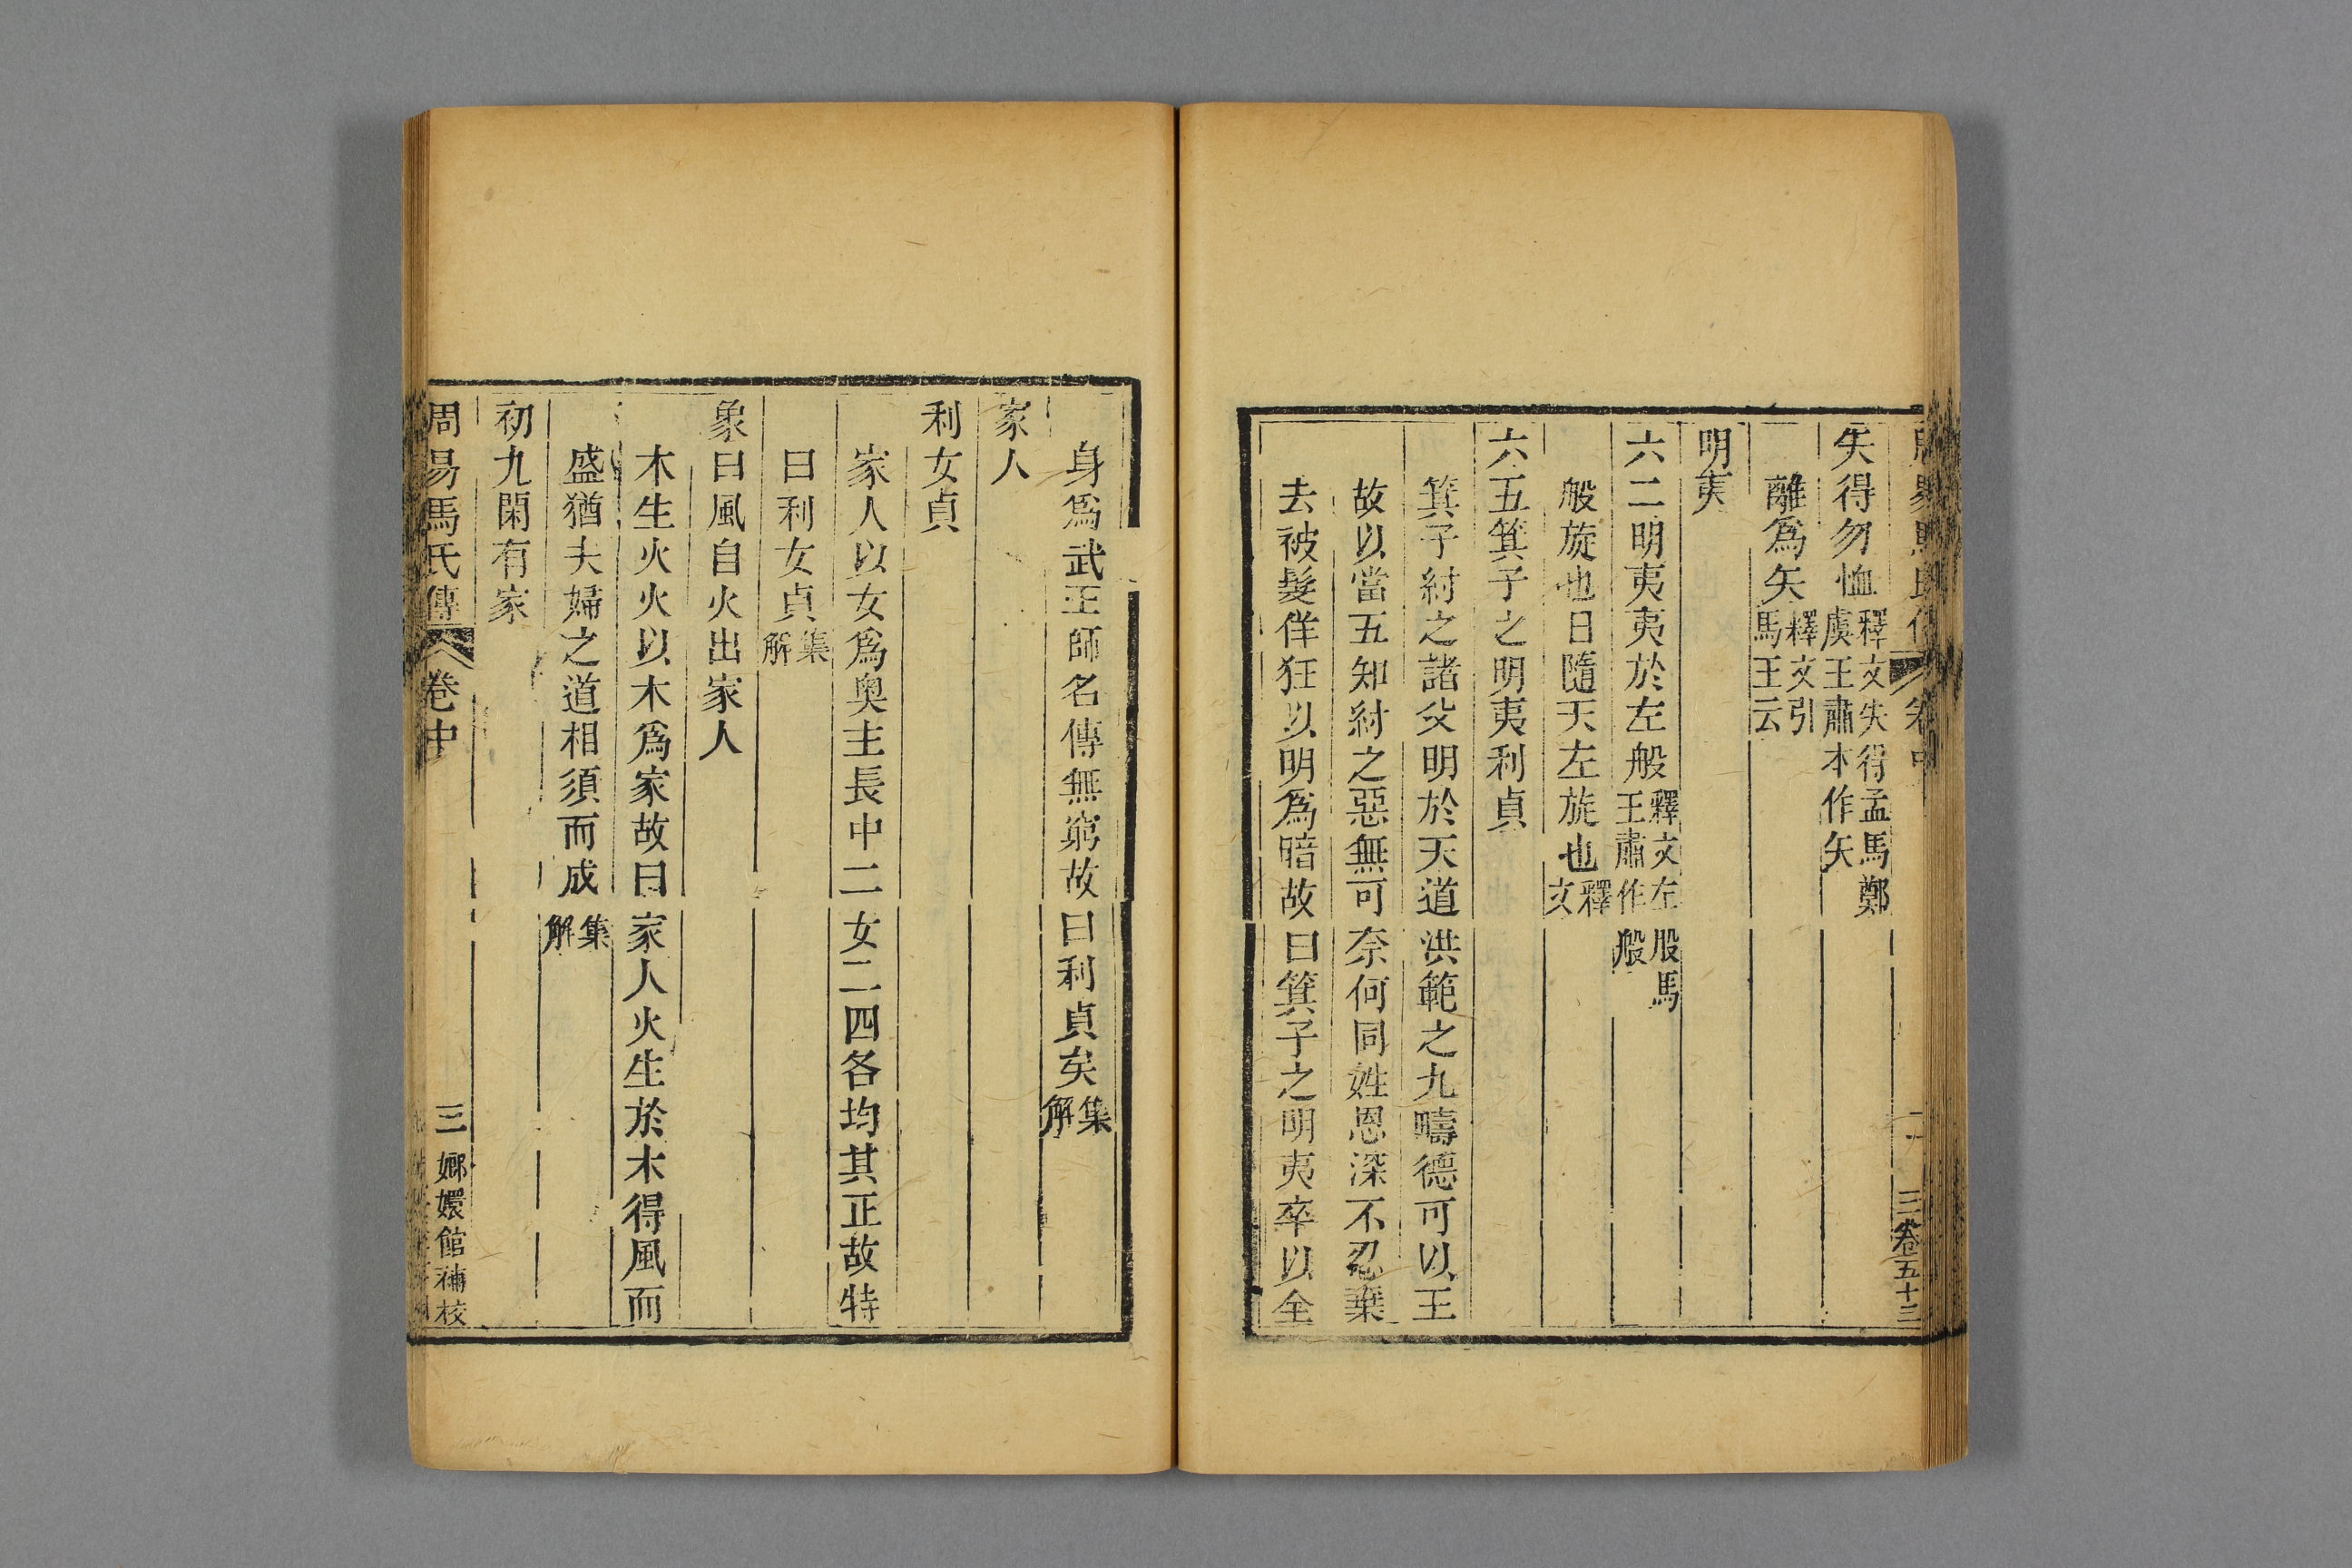 矢得勿恤釋文失得孟馬鄭虞王肅本作矢
離爲矢釋文引馬王云
明夷
六二明夷夷於左般釋文左股馬王肅作般
般旋也日隨天左旋也釋文
六五箕子之明夷利貞
箕子紂之諸父明於天道洪範之九疇德可以王
故以當五知紂之惡無可奈何同姓恩深不忍棄
去被髮佯狂以明爲暗故曰箕子之明夷卒以全
身爲武王師名傳無窮故曰利貞矣集解
家人
利女貞
家人以女爲奥主長中二女二四各均其正故特
曰利女貞集解
象曰風自火出家人
木生火火以木爲家故曰家人火生於木得風而
盛猶夫婦之道相須而成集解
初九閑有家
周易馬氏傳 卷中 三 嫏嬛館補校